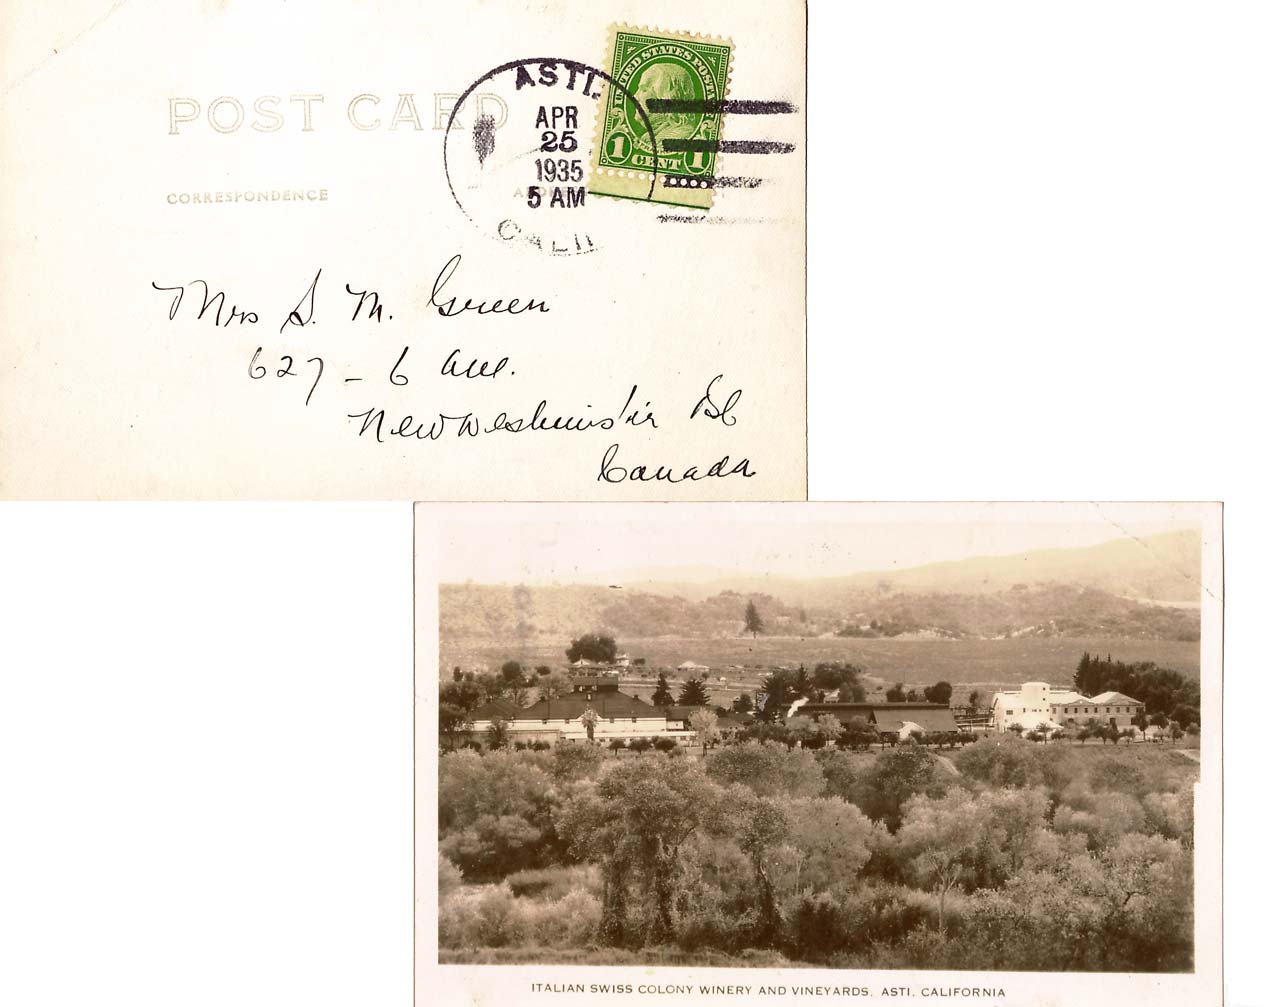 POST CARD
CORRESPONDENCE
ASTI.
APR
25
1935
5 AM
CALIF
UNITED STATES POSTAGE
1 CENT 1
Mrs S. M. Green
627 - 6 Ave.
New Westminster BC
Canada
ITALIAN SWISS COLONY WINERY AND VINEYARDS, ASTI, CALIFORNIA